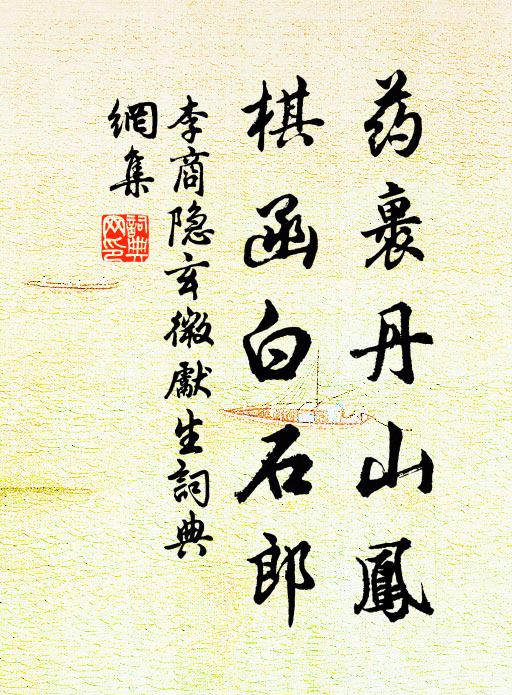 药裹丹山鳳
棋函白石郎
李商隐玄微獻生詞典
網集
詞典
网印